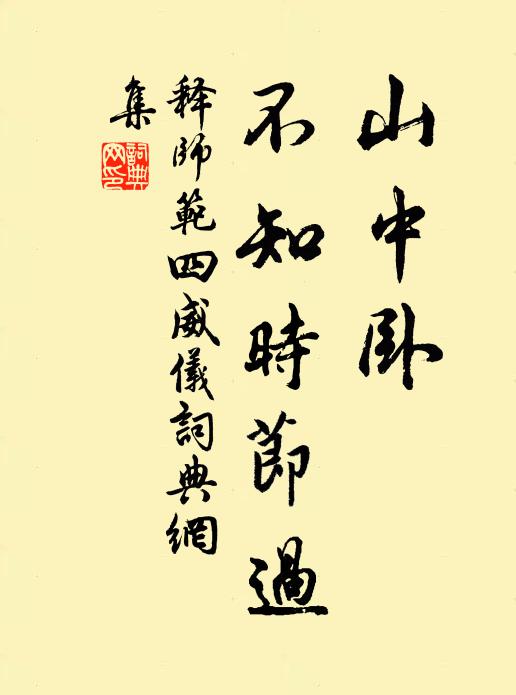 山中卧
不知時節過
释師範四威儀詞典網
集
詞典網印